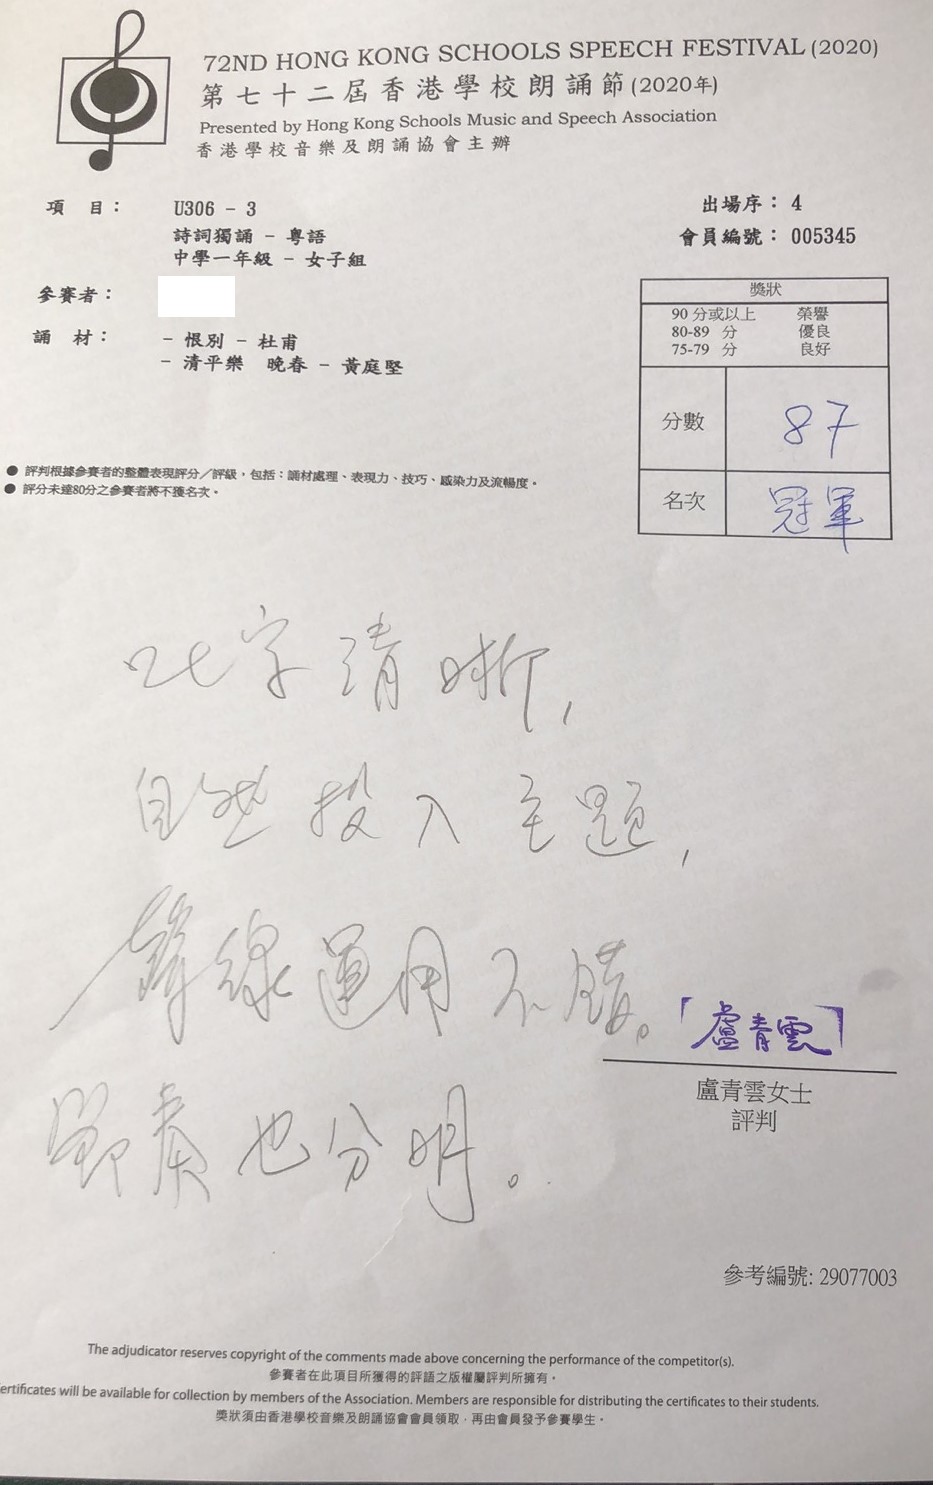 72ND HONG KONG SCHOOLS SPEECH FESTIVAL (2020)
第七十二屆香港學校朗誦節 (2020年)
Presented by Hong Kong Schools Music and Speech Association
香港學校音樂及朗誦協會主辦
項 目： U306 - 3
詩詞獨誦 - 粵語
中學一年級 - 女子組
出場序： 4
會員編號： 005345
參賽者：
誦 材： - 恨別 - 杜甫
- 清平樂 晚春 - 黃庭堅
獎狀
90 分或以上 榮譽
80-89 分 優良
75-79 分 良好
分數 87
名次 冠軍
● 評判根據參賽者的整體表現評分／評級，包括：誦材處理、表現力、技巧、感染力及流暢度。
● 評分未達80分之參賽者將不獲名次。
吐字清晰，
自然投入主題，
線運用不錯。
節奏也分明。
「盧青雲」
盧青雲女士
評判
參考編號: 29077003
The adjudicator reserves copyright of the comments made above concerning the performance of the competitor(s).
參賽者在此項目所獲得的評語之版權屬評判所擁有。
ertificates will be available for collection by members of the Association. Members are responsible for distributing the certificates to their students.
獎狀須由香港學校音樂及朗誦協會會員領取，再由會員發予參賽學生。